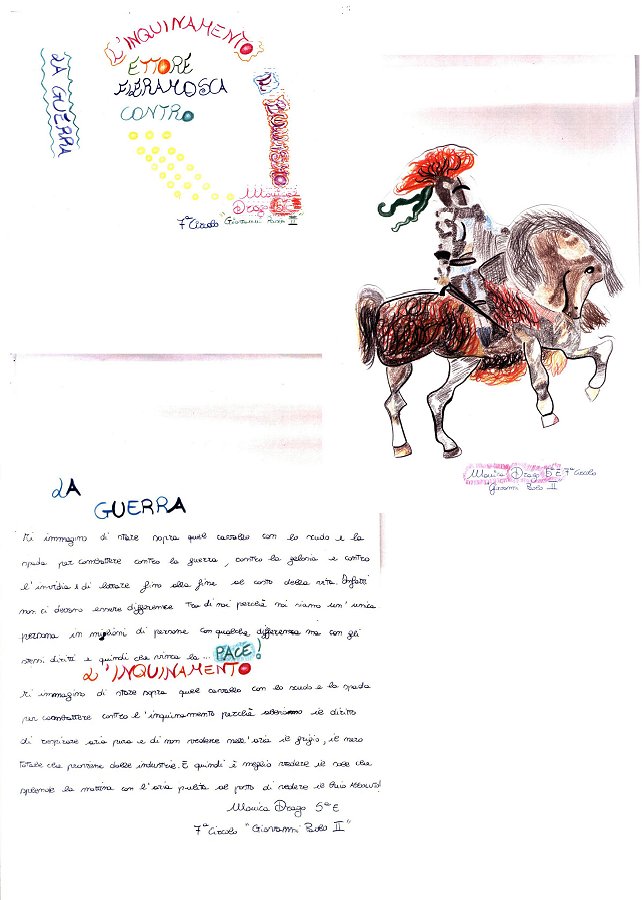 L'INQUINAMENTO
LA GUERRA
ETTORE
FIERAMOSCA
CONTRO
Monica
Drago 5ª E
7º Circolo "Giovanni Paolo II"
Monica Drago 5ª E 7º Circolo
Giovanni Paolo II
LA
GUERRA
Mi immagino di stare sopra quel cavallo con lo scudo e la
spada per combattere contro la guerra, contro la gelosia e contro
l'invidia e di lottare fino alla fine al costo della vita. Infatti
non ci devono essere differenze tra di noi perchè noi siamo un'unica
persona in miglioni di persone con qualche differenza ma con gli
stessi diritti e quindi che vinca la... PACE!
L'INQUINAMENTO
Mi immagino di stare sopra quel cavallo con lo scudo e la spada
per combattere contro l'inquinamento perchè abbiamo il diritto
di respirare aria pura e di non vedere nell'aria il grigio, il nero
totale che proviene dalle industrie. E quindi è meglio vedere il sole che
splende la mattina con l'aria pulita al posto di vedere il buio
Monica Drago 5ª E
7º Circolo "Giovanni Paolo II"